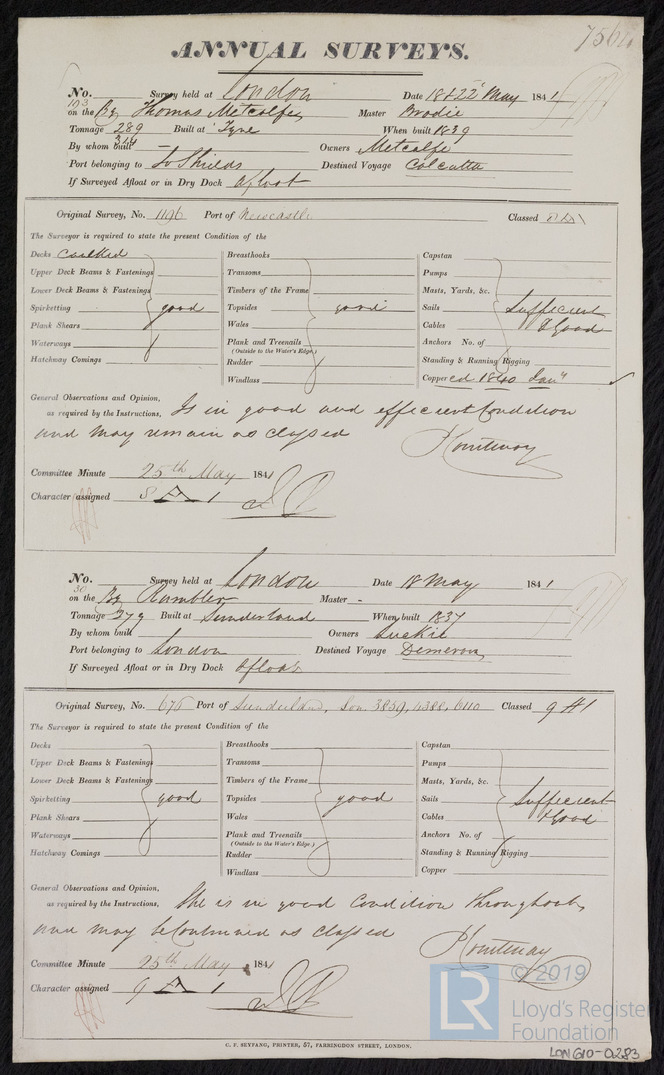 ANNUAL SURVEYS.
No. Survey held at London Date 18 & 22 May 1841
103
on the Bg Thomas Metcalfe Master Brodie
Tonnage 289 Built at Tyne When built 1839
324
By whom built — Owners Metcalfe
Port belonging to So Shields Destined Voyage Calcutta
If Surveyed Afloat or in Dry Dock Afloat
Original Survey, No. 1196 Port of Newcastle Classed 8 A 1
The Surveyor is required to state the present Condition of the
Decks caulked Breasthooks Capstan
Upper Deck Beams & Fastenings Transoms Pumps
Lower Deck Beams & Fastenings Timbers of the Frame Masts, Yards, &c.
Spirketting good Topsides good Sails Sufficient
Plank Shears Wales Cables & Good
Waterways Plank and Treenails Anchors No. of
(Outside to the Water's Edge.)
Hatchway Comings Rudder Standing & Running Rigging
Windlass Coppered 1840 Jany
General Observations and Opinion,
as required by the Instructions, Is in good and efficient Condition
and may remain as classed
Courtenay
Committee Minute 25th May 1841
Character assigned 8 A 1
No. Survey held at London Date 18 May 1841
30
on the Bg Rambler Master -
Tonnage 279 Built at Sunderland When built 1837
By whom built Owners Luckie
Port belonging to London Destined Voyage Demerara
If Surveyed Afloat or in Dry Dock Afloat
Original Survey, No. 675 Port of Sunderland, Lon. 3859, 4388, 6110 Classed 9 A 1
The Surveyor is required to state the present Condition of the
Decks Breasthooks Capstan
Upper Deck Beams & Fastenings Transoms Pumps
Lower Deck Beams & Fastenings Timbers of the Frame Masts, Yards, &c.
Spirketting good Topsides good Sails Sufficient
Plank Shears Wales Cables & Good
Waterways Plank and Treenails Anchors No. of
(Outside to the Water's Edge.)
Hatchway Comings Rudder Standing & Running Rigging
Windlass Copper
General Observations and Opinion,
as required by the Instructions, She is in good Condition throughout,
and may be Continued as classed
Courtenay
Committee Minute 25th May 1841
Character assigned 9 A 1
C. F. SEYFANG, PRINTER, 57, FARRINGDON STREET, LONDON.
LR © 2019
Lloyd's Register
Foundation
LON610-0283